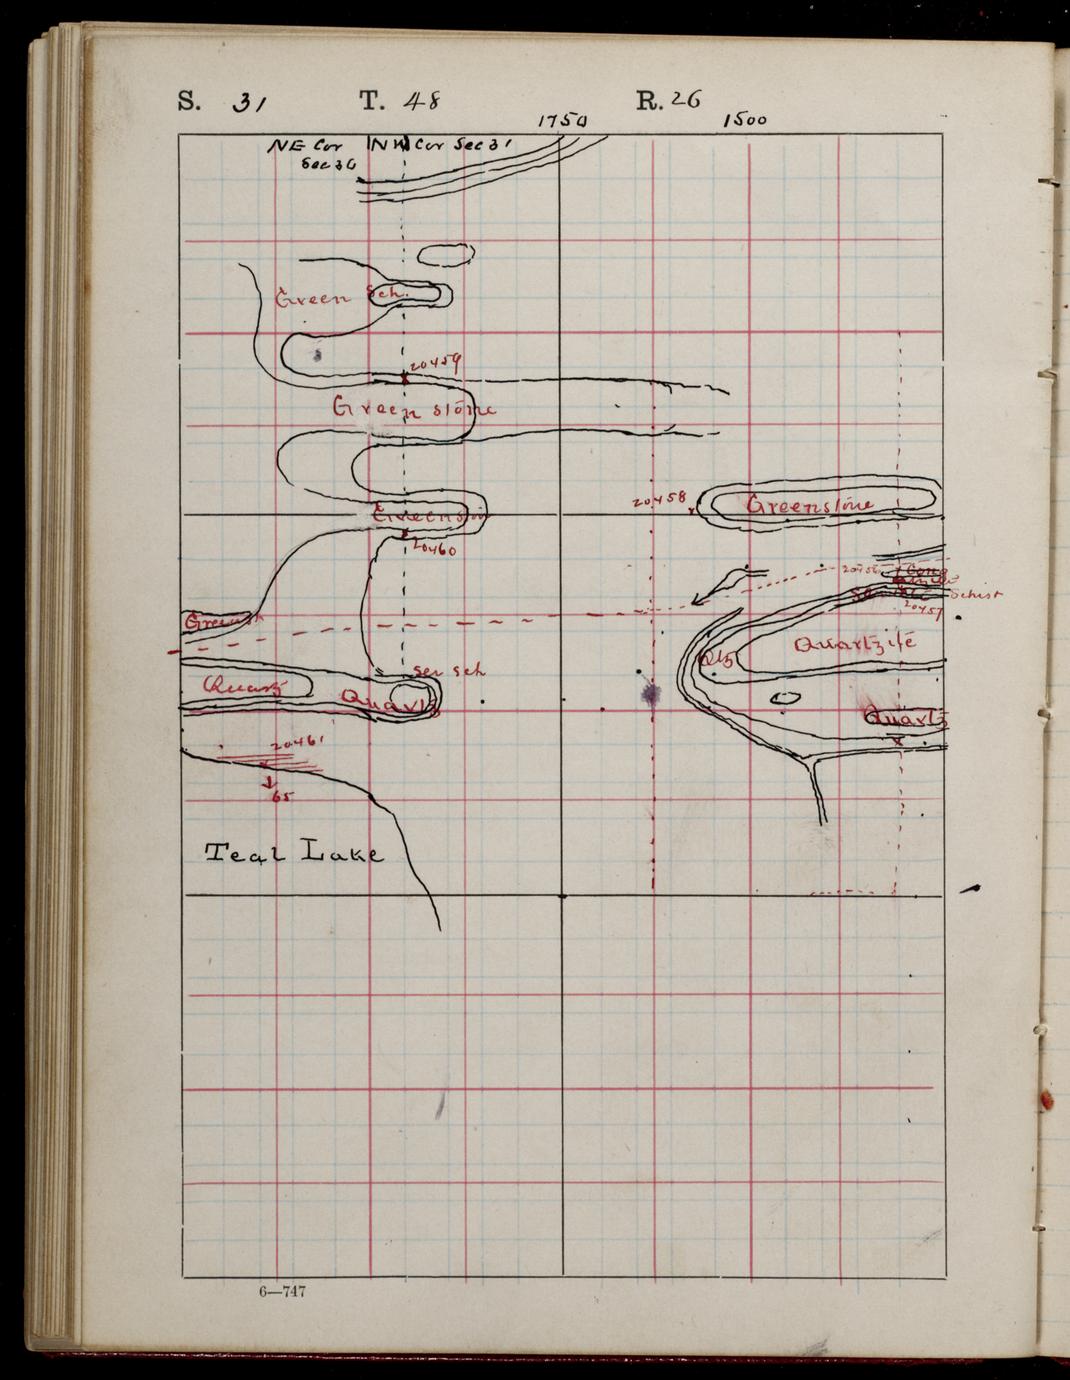 S. 31 T. 48 R. 26
1750 1500
NE Cor NW Cor Sec 31
Sec 36
Green Sch.
20459
Greenstone
20458 Greenstone
Greenston
20460
20456 Cong
Schist
20457
Greenst
Quartzite
Qtz
ser sch
Quartz Quartz
Quartz
20461
65
Teal Lake
6—747